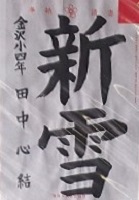 新雪
金沢小四年
田中心結